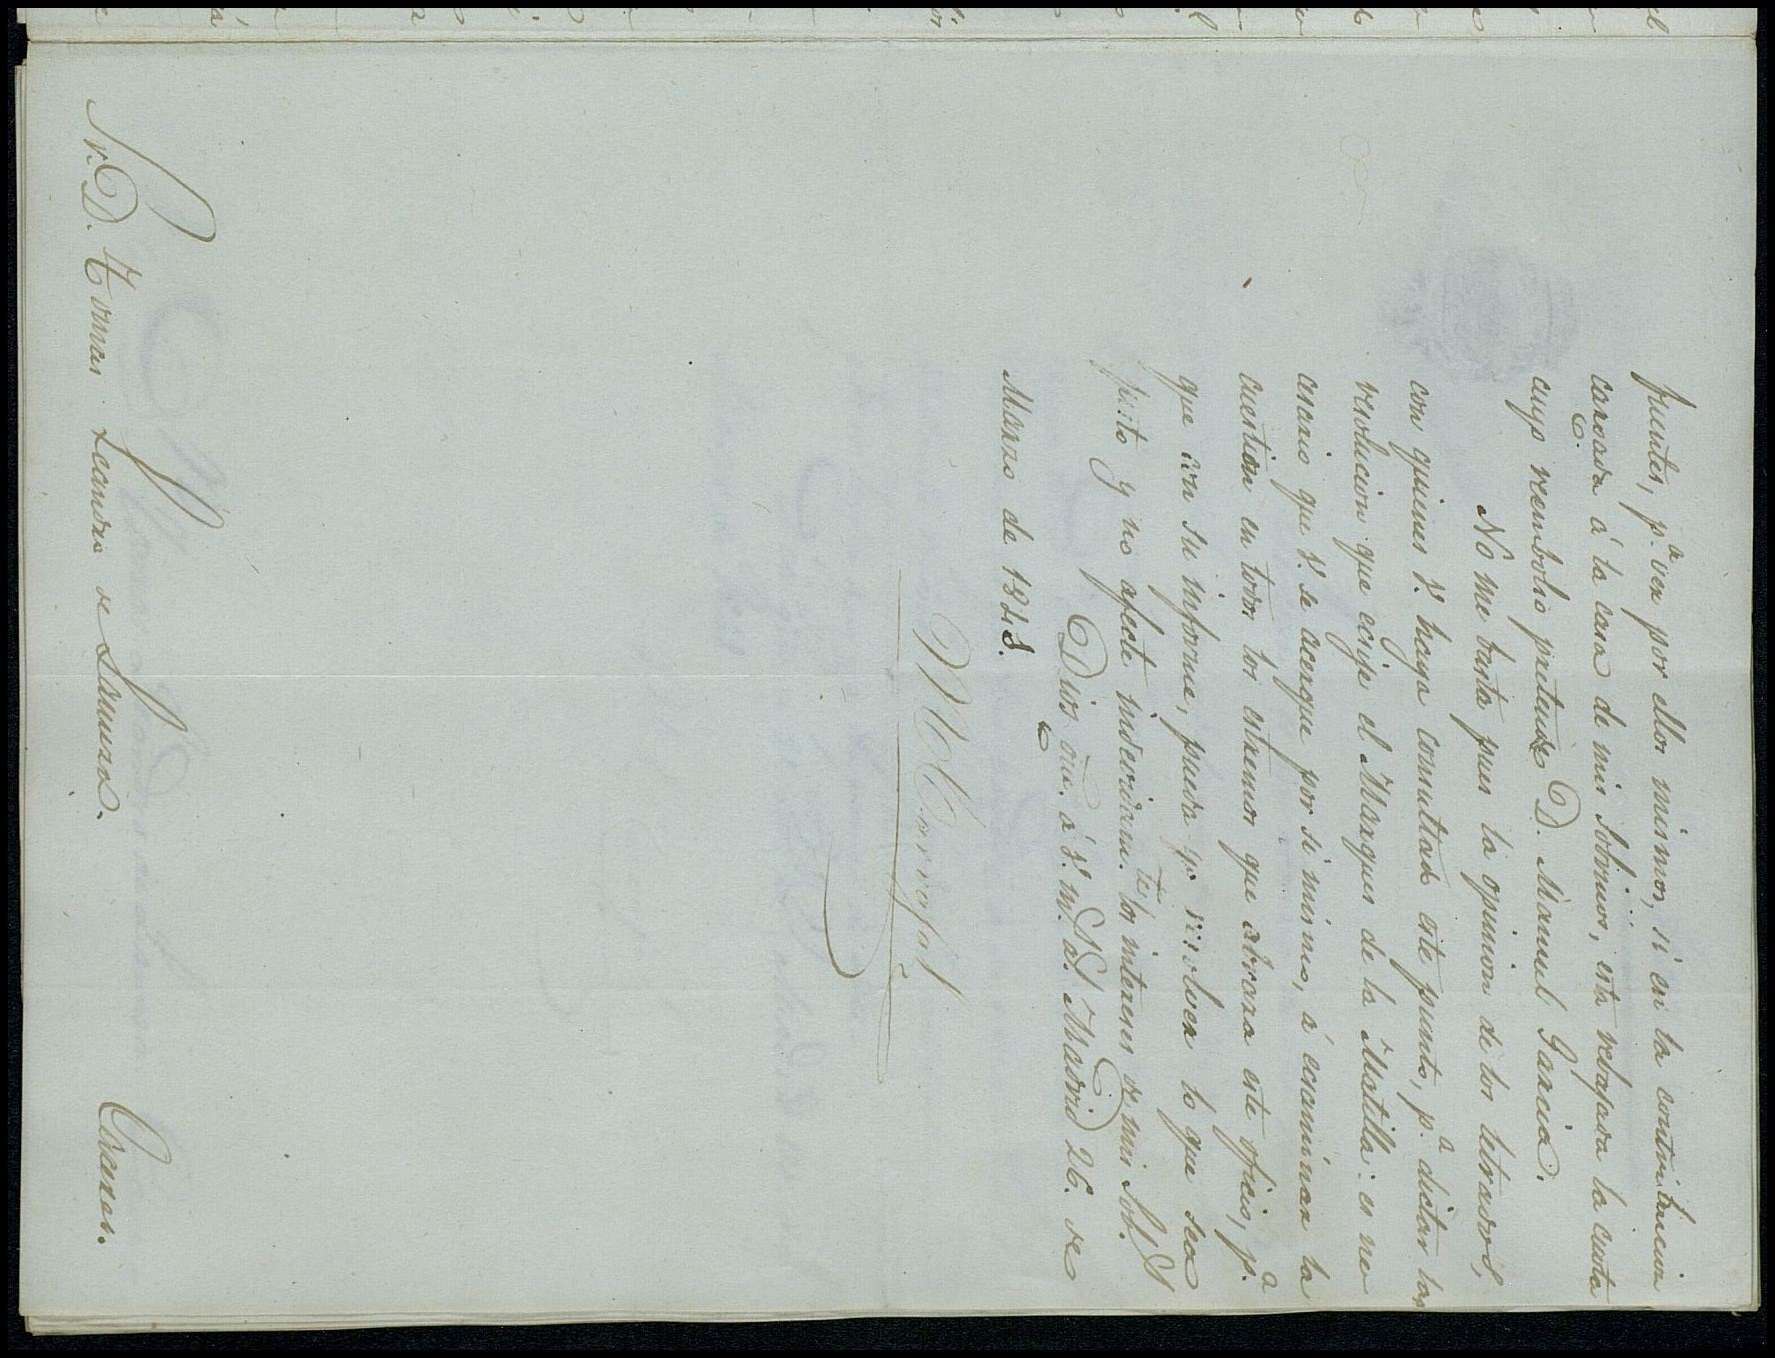 puentes, p.ª ver por ellos mismos, si en la contribucion
cargada á la casa de mis Sobrinos, está rebajada la cuota
cuyo reembolso pretende D. Manuel Garcia.
No me basta pues la opinion de los letrados,
con quienes V. haya consultado este punto, p.ª dictar la
resolucion que ecsije el Marques de la Matilla: es ne
cesario que V. se acerque por si mismo, á ecsaminar la
cuestion en todos los estremos que abraza este oficio, p.ª
que con su informe, pueda yo resolver lo que sea
justo y no afecte indevidam.te los intereses de mis Sob.s
Dios gue. á V. m.s a.s Madrid 26. de
Marzo de 1848.
M. Carvajal
Sr. D. Tomas Leandro de
Caceres.